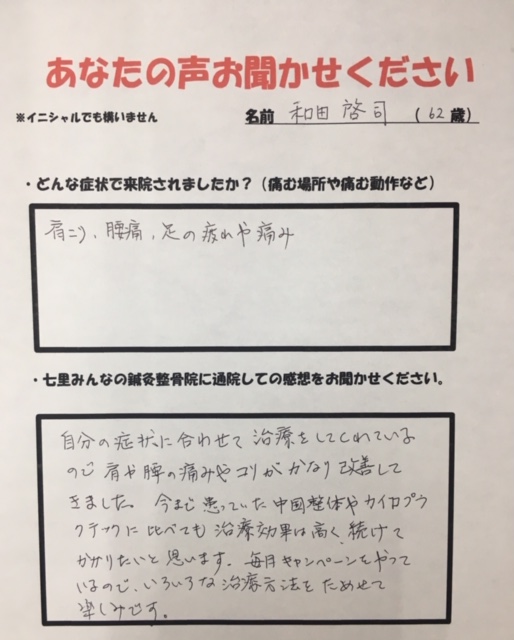 あなたの声お聞かせください
※イニシャルでも構いません 名前 和田 啓司 (62歳)
・どんな症状で来院されましたか？（痛む場所や痛む動作など）
肩こり、腰痛、足の疲れや痛み
・七里みんなの鍼灸整骨院に通院しての感想をお聞かせください。
自分の症状に合わせて治療をしてくれている
ので肩や脾の痛みやコリがかなり改善して
きました。今まで通っていた中国整体やカイロプラ
クテックに比べても治療効果は高く、続けて
かかりたいと思います。毎月キャンペーンをやって
いるので、いろいろな治療方法をためせて
楽しみです。